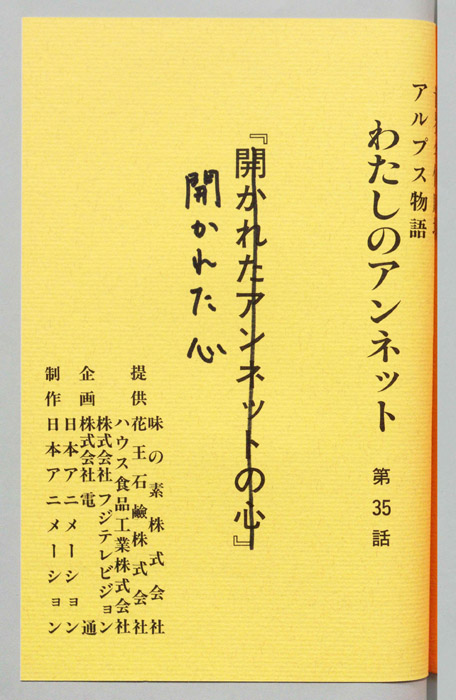 アルプス物語
わたしのアンネット 第35話
『開かれたアンネットの心』
開かれた心
提供 味の素株式会社
花王石鹼株式会社
ハウス食品工業株式会社
企画 株式会社フジテレビジョン
株式会社電通
日本アニメーション
制作 日本アニメーション